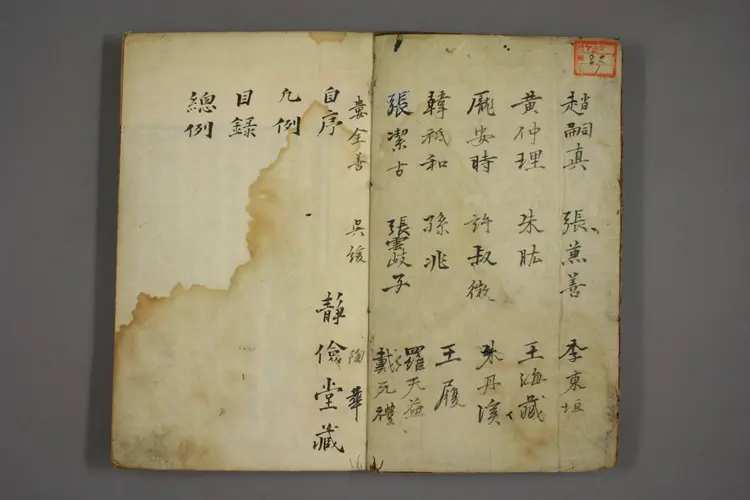 趙嗣真 張兼善 李東垣
黄仲理 朱肱 王海藏
龐安時 許叔微 朱丹溪
韓祇和 孫兆 王履
羅天益
張潔古 張雲岐子 戴元禮
婁全善 吳綬 陶華
自序 靜儉堂藏
凡例
目録
總例